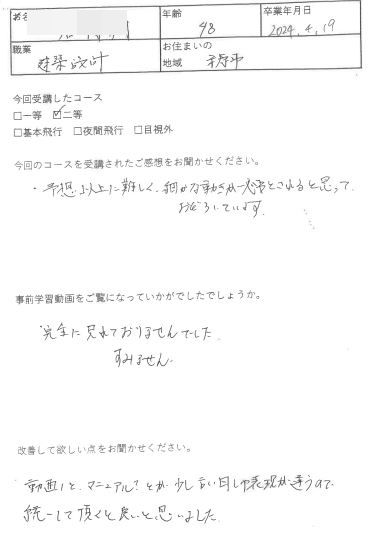 氏名
年齢
48
卒業年月日
2024.4.19
職業
建築設計
お住まいの
地域
今回受講したコース
□一等 ☑二等
□基本飛行 □夜間飛行 □目視外
今回のコースを受講されたご感想をお聞かせください。
・予想以上に難しく、細かな動きが
と思って
おどろいています。
事前学習動画をご覧になっていかがでしたでしょうか。
完全に見れておりませんでした。
すみません。
改善して欲しい点をお聞かせください。
動画1と、マニュアル?とが少し言い回しや表現が違うので、
統一して頂くと良いと思いました。